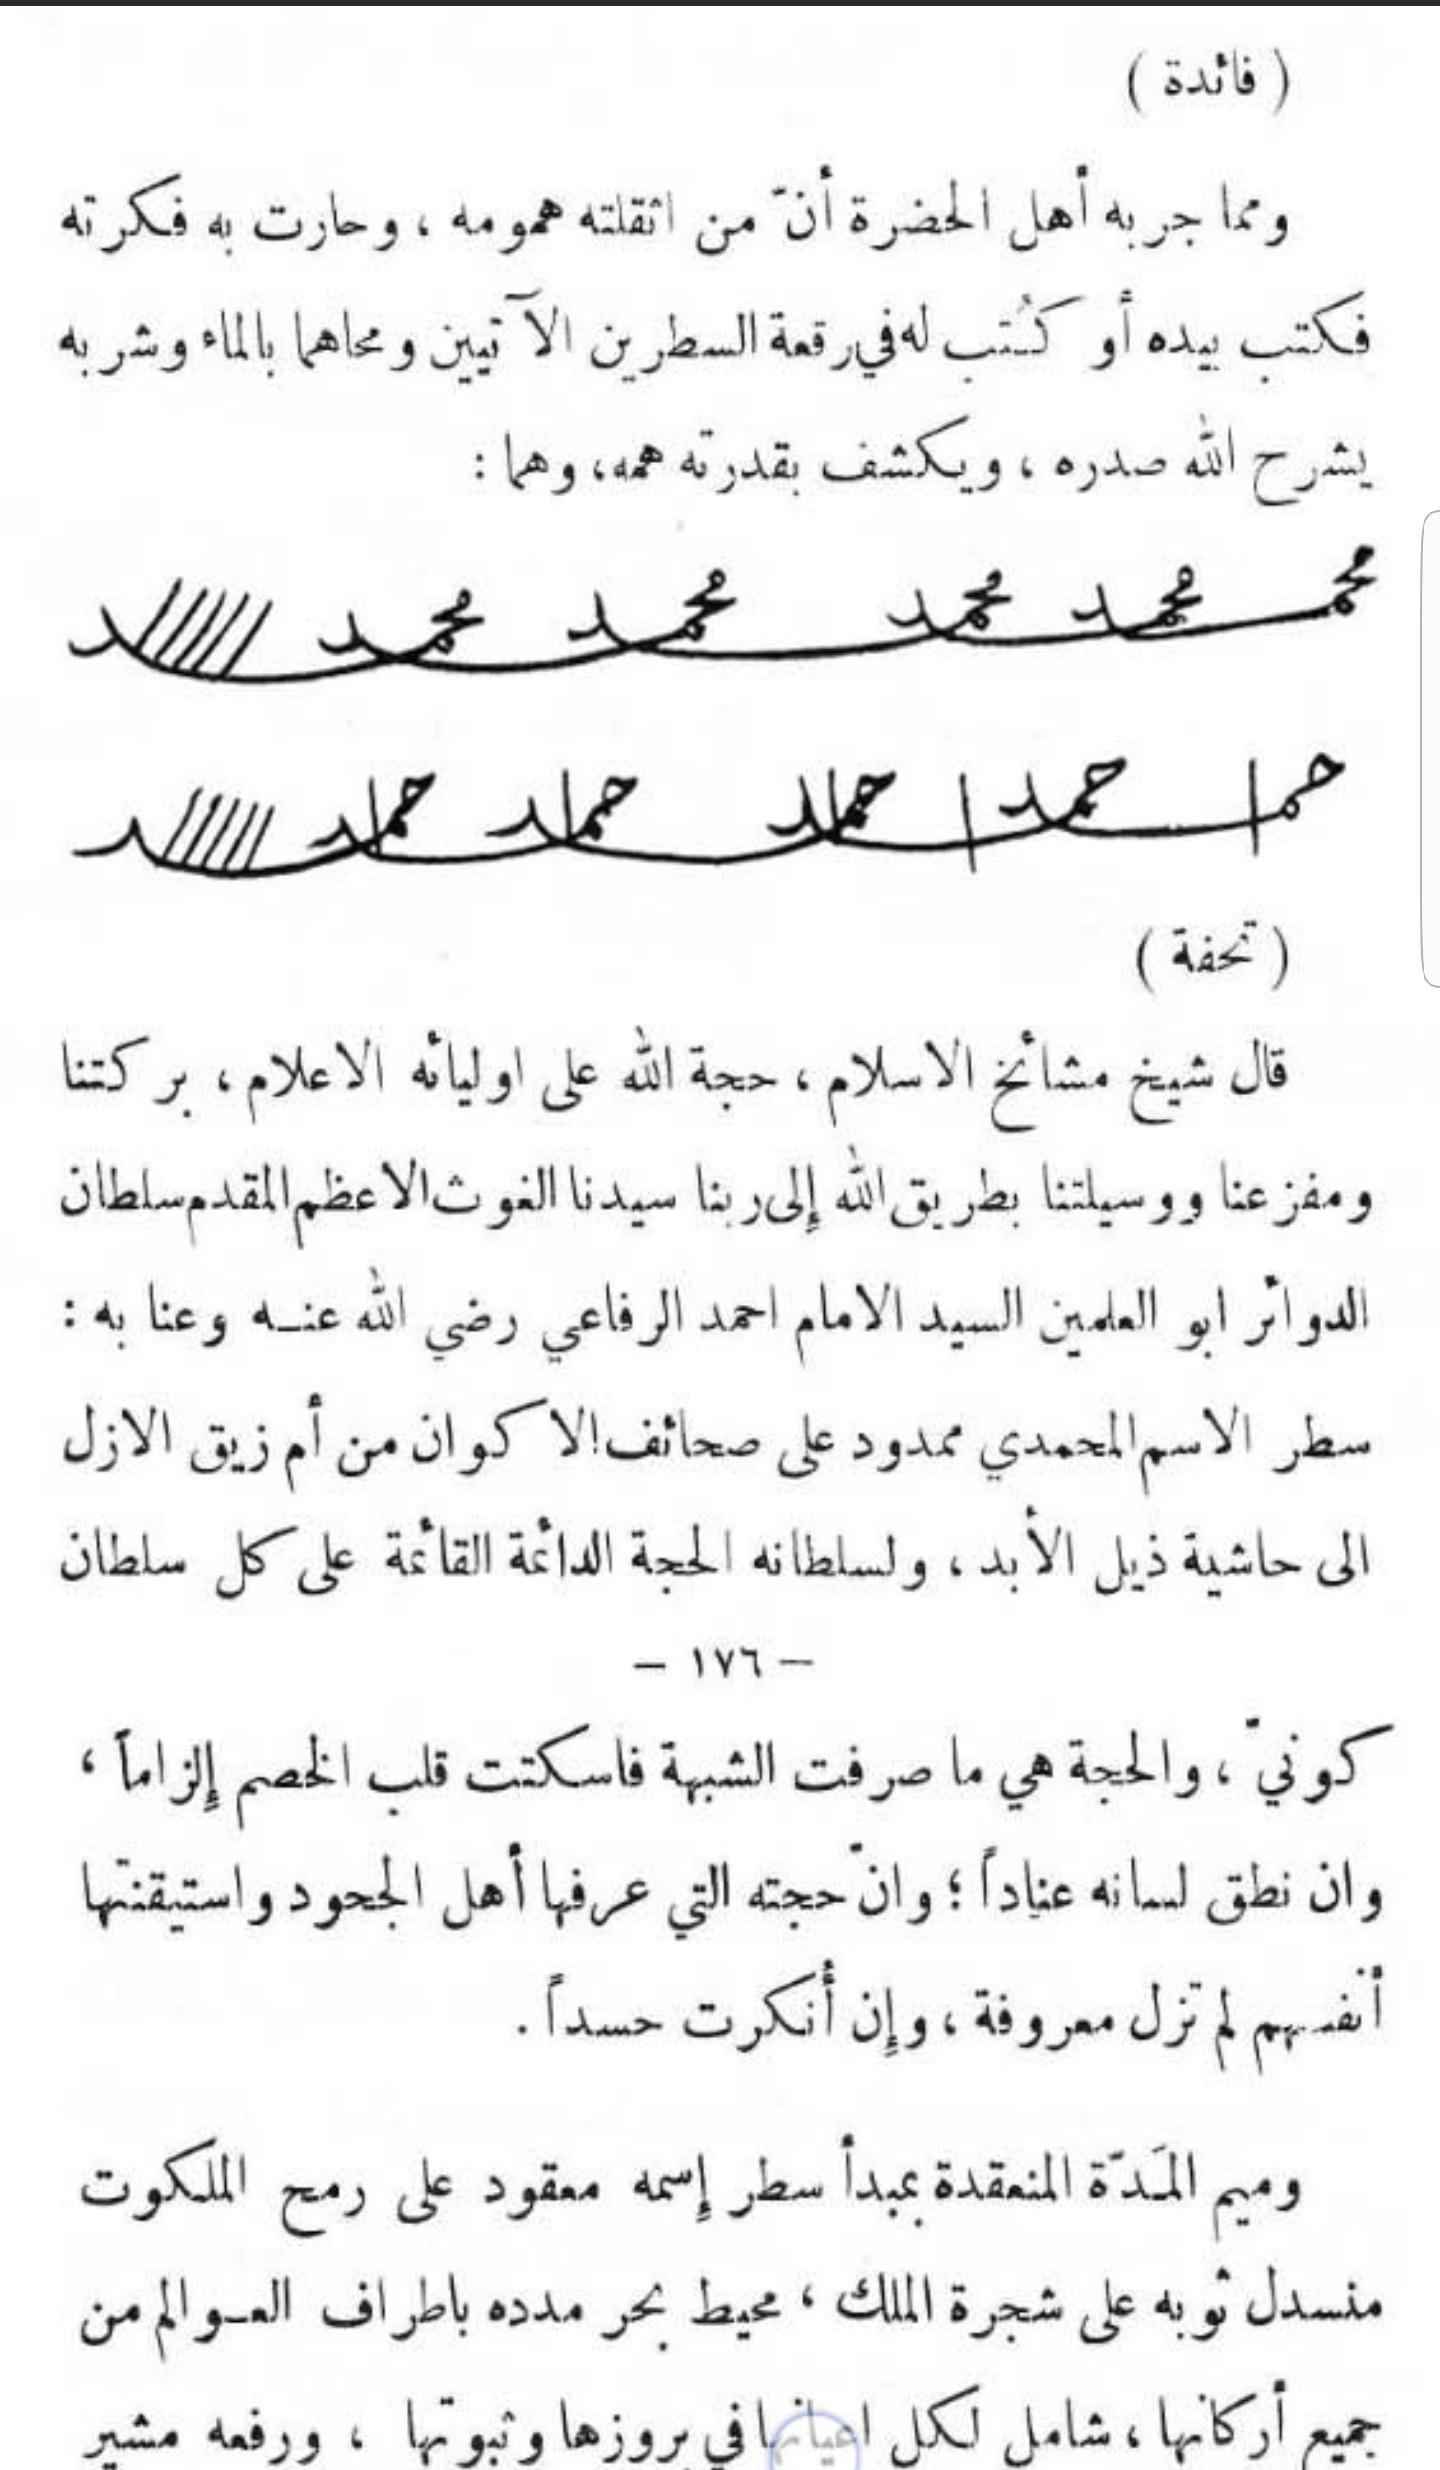 ( فائدة )
ومما جربه أهل الحضرة أنّ من اثقلته همومه ، وحارت به فكرته
فكتب بيده أو كُتب له في رقعة السطرين الآتيين ومحاهما بالماء وشربه
يشرح الله صدره ، ويكشف بقدرته همه، وهما :
( تحفة )
قال شيخ مشائخ الاسلام ، حجة الله على اوليائه الاعلام ، بركتنا
ومفزعنا ووسيلتنا بطريق الله إلى ربنا سيدنا الغوث الاعظم المقدم سلطان
الدوائر ابو العلمين السيد الامام احمد الرفاعي رضي الله عنه وعنا به :
سطر الاسم المحمدي ممدود على صحائف الاكوان من أم زيق الازل
الى حاشية ذيل الأبد ، ولسلطانه الحجة الدائمة القائمة على كل سلطان
– ١٧٦ –
كونيّ ، والحجة هي ما صرفت الشبهة فاسكتت قلب الخصم إلزاماً ،
وان نطق لسانه عناداً ؛ وانّ حجته التي عرفها أهل الجحود واستيقنتها
أنفسهم لم تزل معروفة ، وإن أنكرت حسداً .
وميم المَدّة المنعقدة بمبدأ سطر إسمه معقود على رمح الملكوت
منسدل ثوبه على شجرة الملك ، محيط بحر مدده باطراف العوالم من
جميع أركانها ، شامل لكل اعيانها في بروزها وثبوتها ، ورفعه مشير